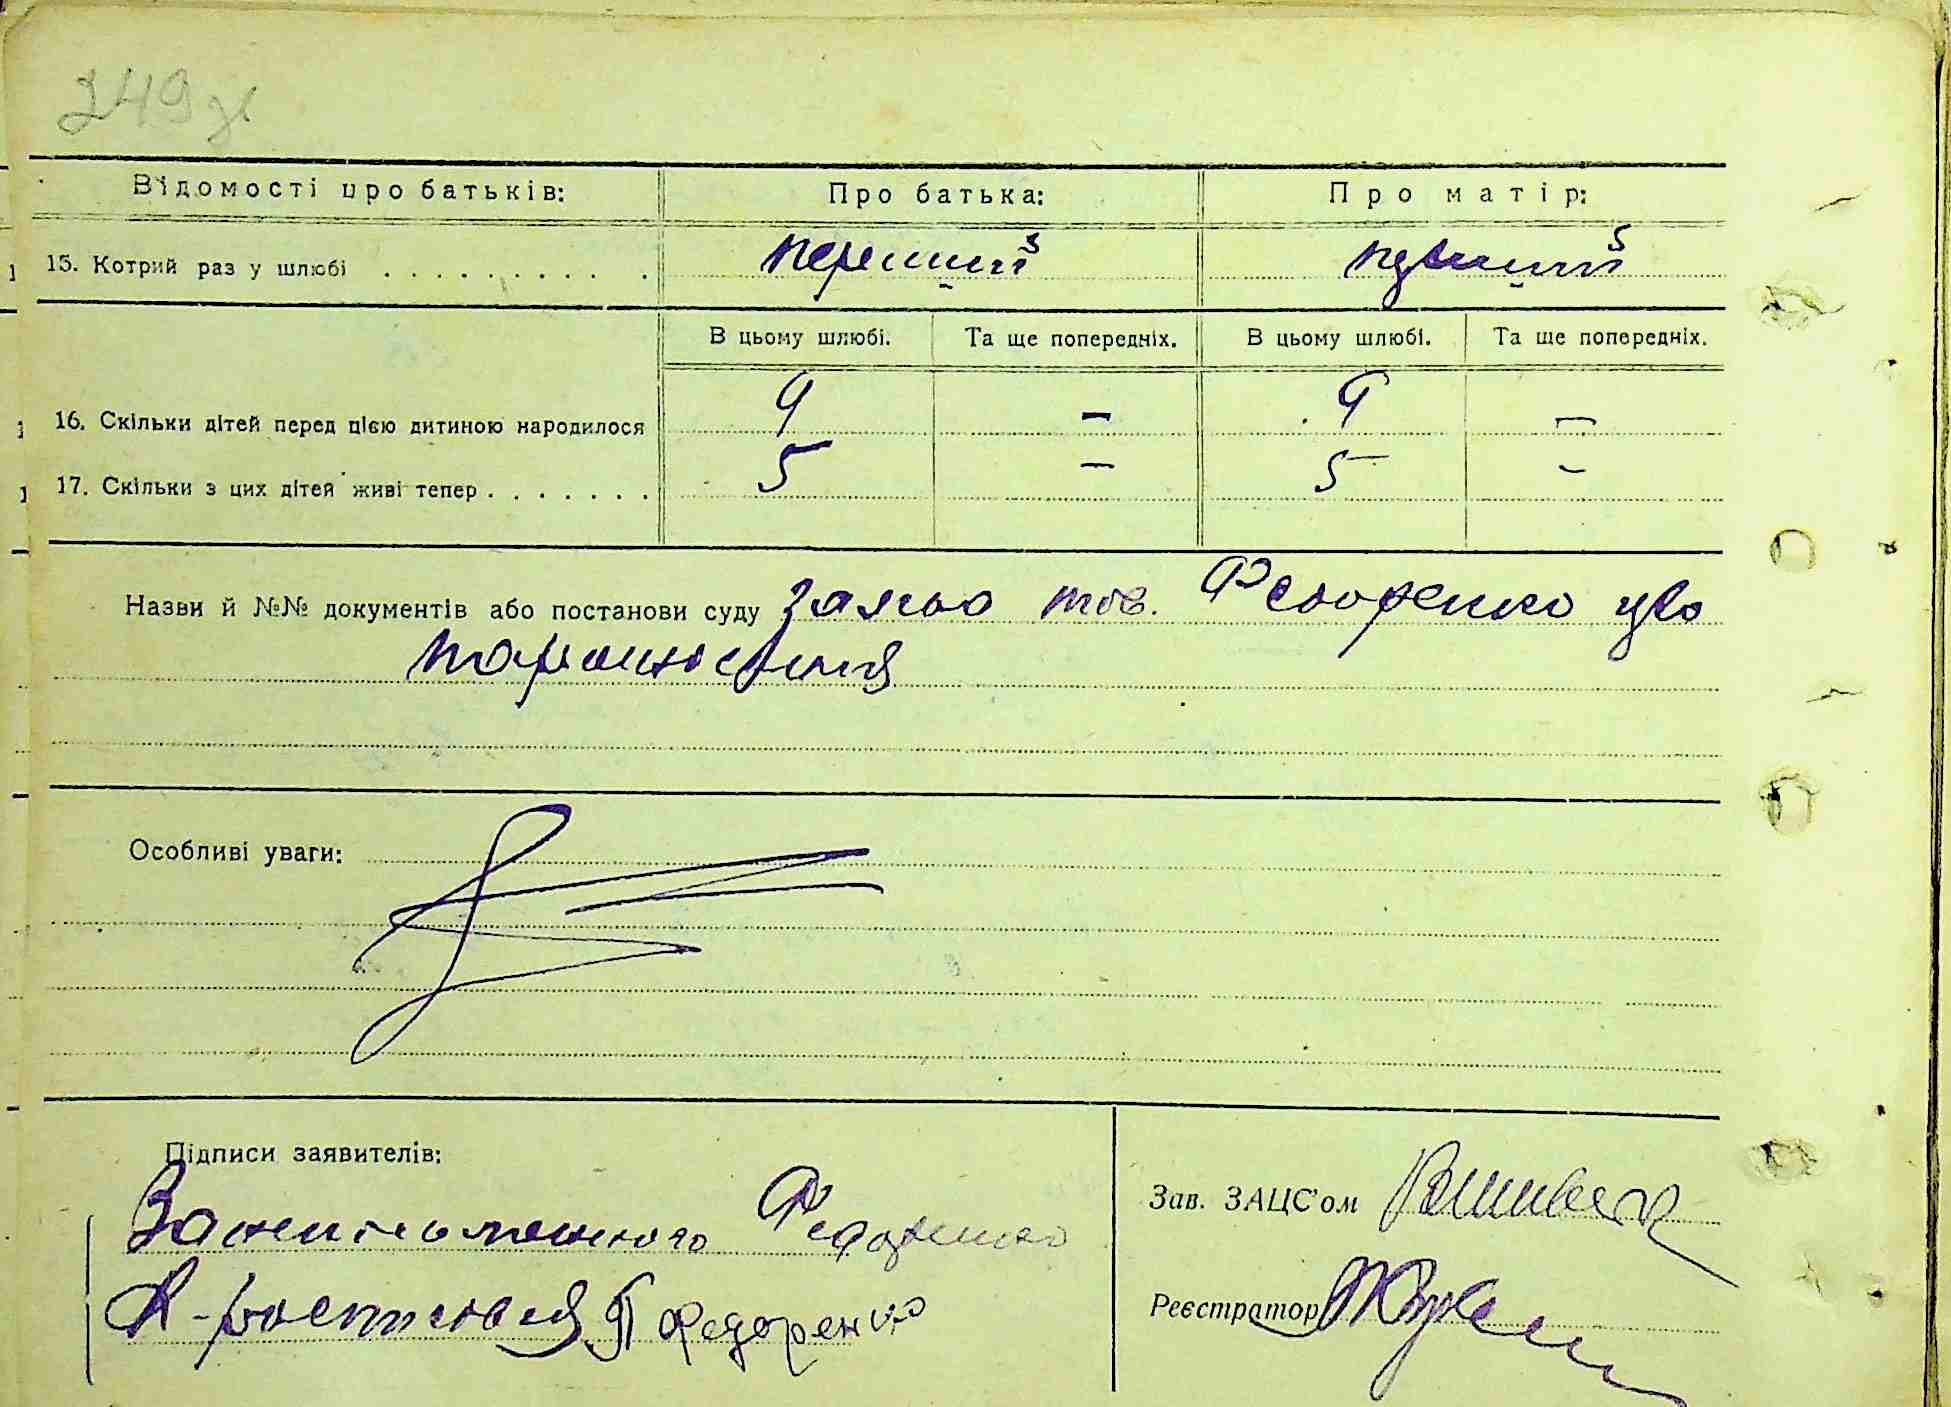 249 зв
Відомості про батьків: Про батька: Про матір:
15. Котрий раз у шлюбі . . . . . . . . . . перший перший
В цьому шлюбі. Та ще попередніх. В цьому шлюбі. Та ще попередніх.
16. Скільки дітей перед цією дитиною народилося 9 — 9 —
17. Скільки з цих дітей живі тепер . . . . . . . 5 — 5 —
Назви й №№ документів або постанови суду заява тов. Федоренко про
народження
Особливі уваги:
Підписи заявителів:
Федоренко
П Федоренко
Зав. ЗАЦС'ом
Реєстратор